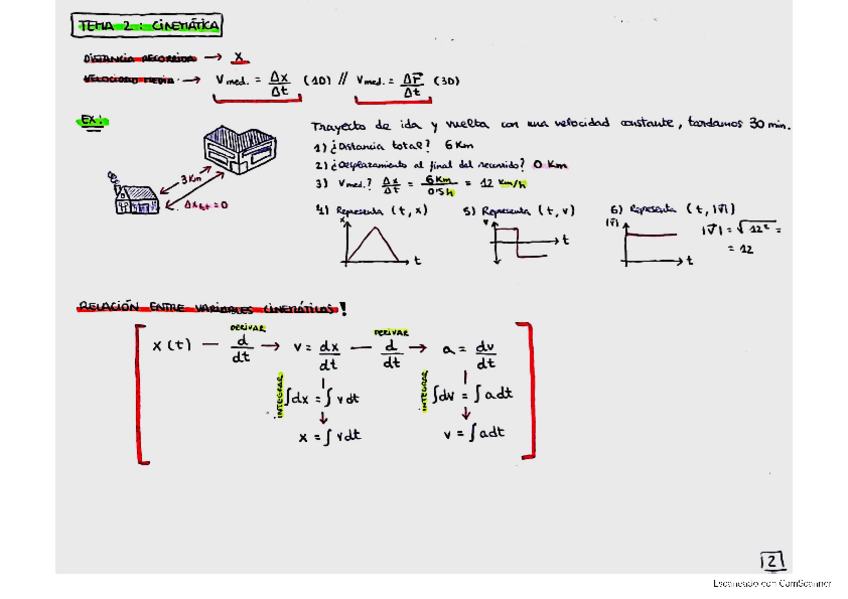 TEMA 2: CINEMÁTICA
DISTANCIA RECORRIDA → X
VELOCIDAD MEDIA → Vmed. = Δx/Δt (1D) // Vmed. = Δr⃗/Δt (3D)
EX:
Trayecto de ida y vuelta con una velocidad constante, tardamos 30 min.
1) ¿Distancia total? 6 Km
2) ¿Desplazamiento al final del recorrido? 0 Km
3) Vmed.? Δx/Δt = 6 Km/0'5 h = 12 Km/h
3 Km
= 0
4) Representa (t, x) 5) Representa (t, v) 6) Representa (t, |v⃗|)
x t
v t
|v⃗| t
|v⃗| = √12² =
= 12
RELACIÓN ENTRE VARIABLES CINEMÁTICAS!
DERIVAR DERIVAR
x(t) — d/dt → v = dx/dt — d/dt → a = dv/dt
INTEGRAR ∫dx = ∫vdt INTEGRAR ∫dv = ∫adt
x = ∫vdt v = ∫adt
2
Escaneado con CamScanner